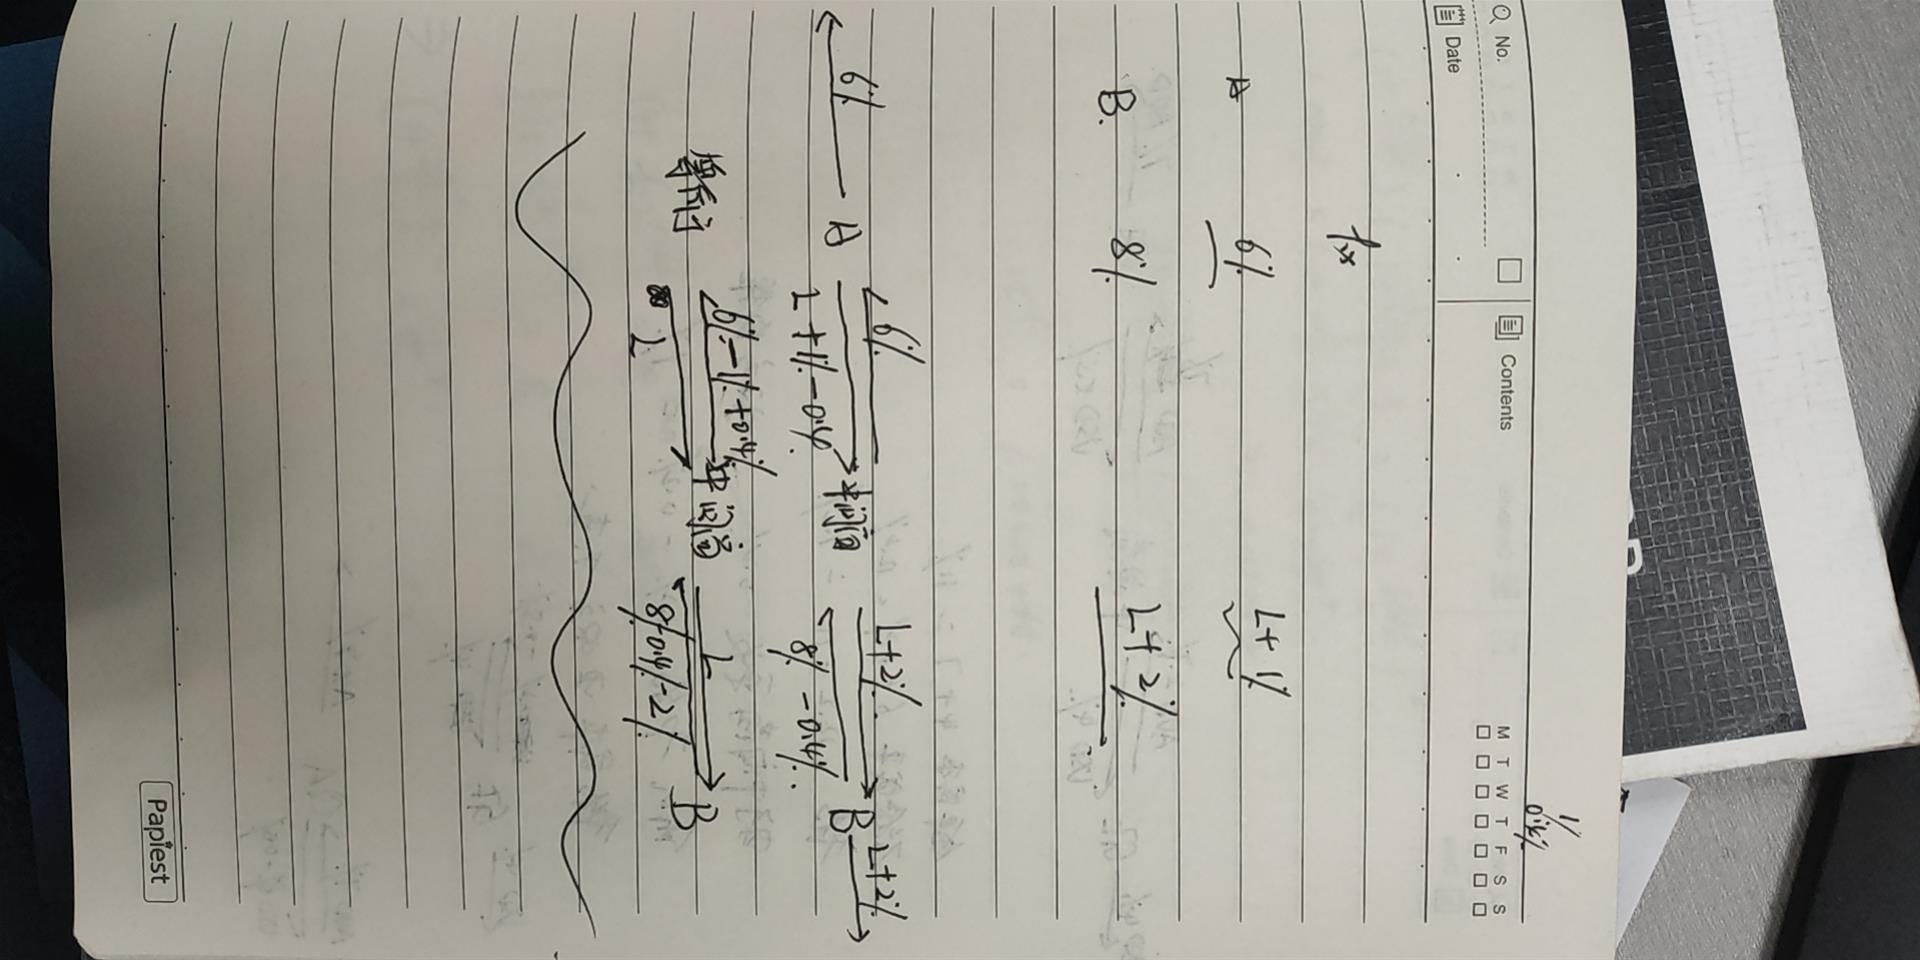 No.
Date
Contents
M T W T F S S
fix
A 6% L+1%
B. 8% L+2%
6% L+2%
6% A 中间商 B L+2%
L+1%-0.4% 8%-0.4%.
6%-1%+0.4% L
等同于 中间商 B
L 8%-0.4%-2%
Papiest